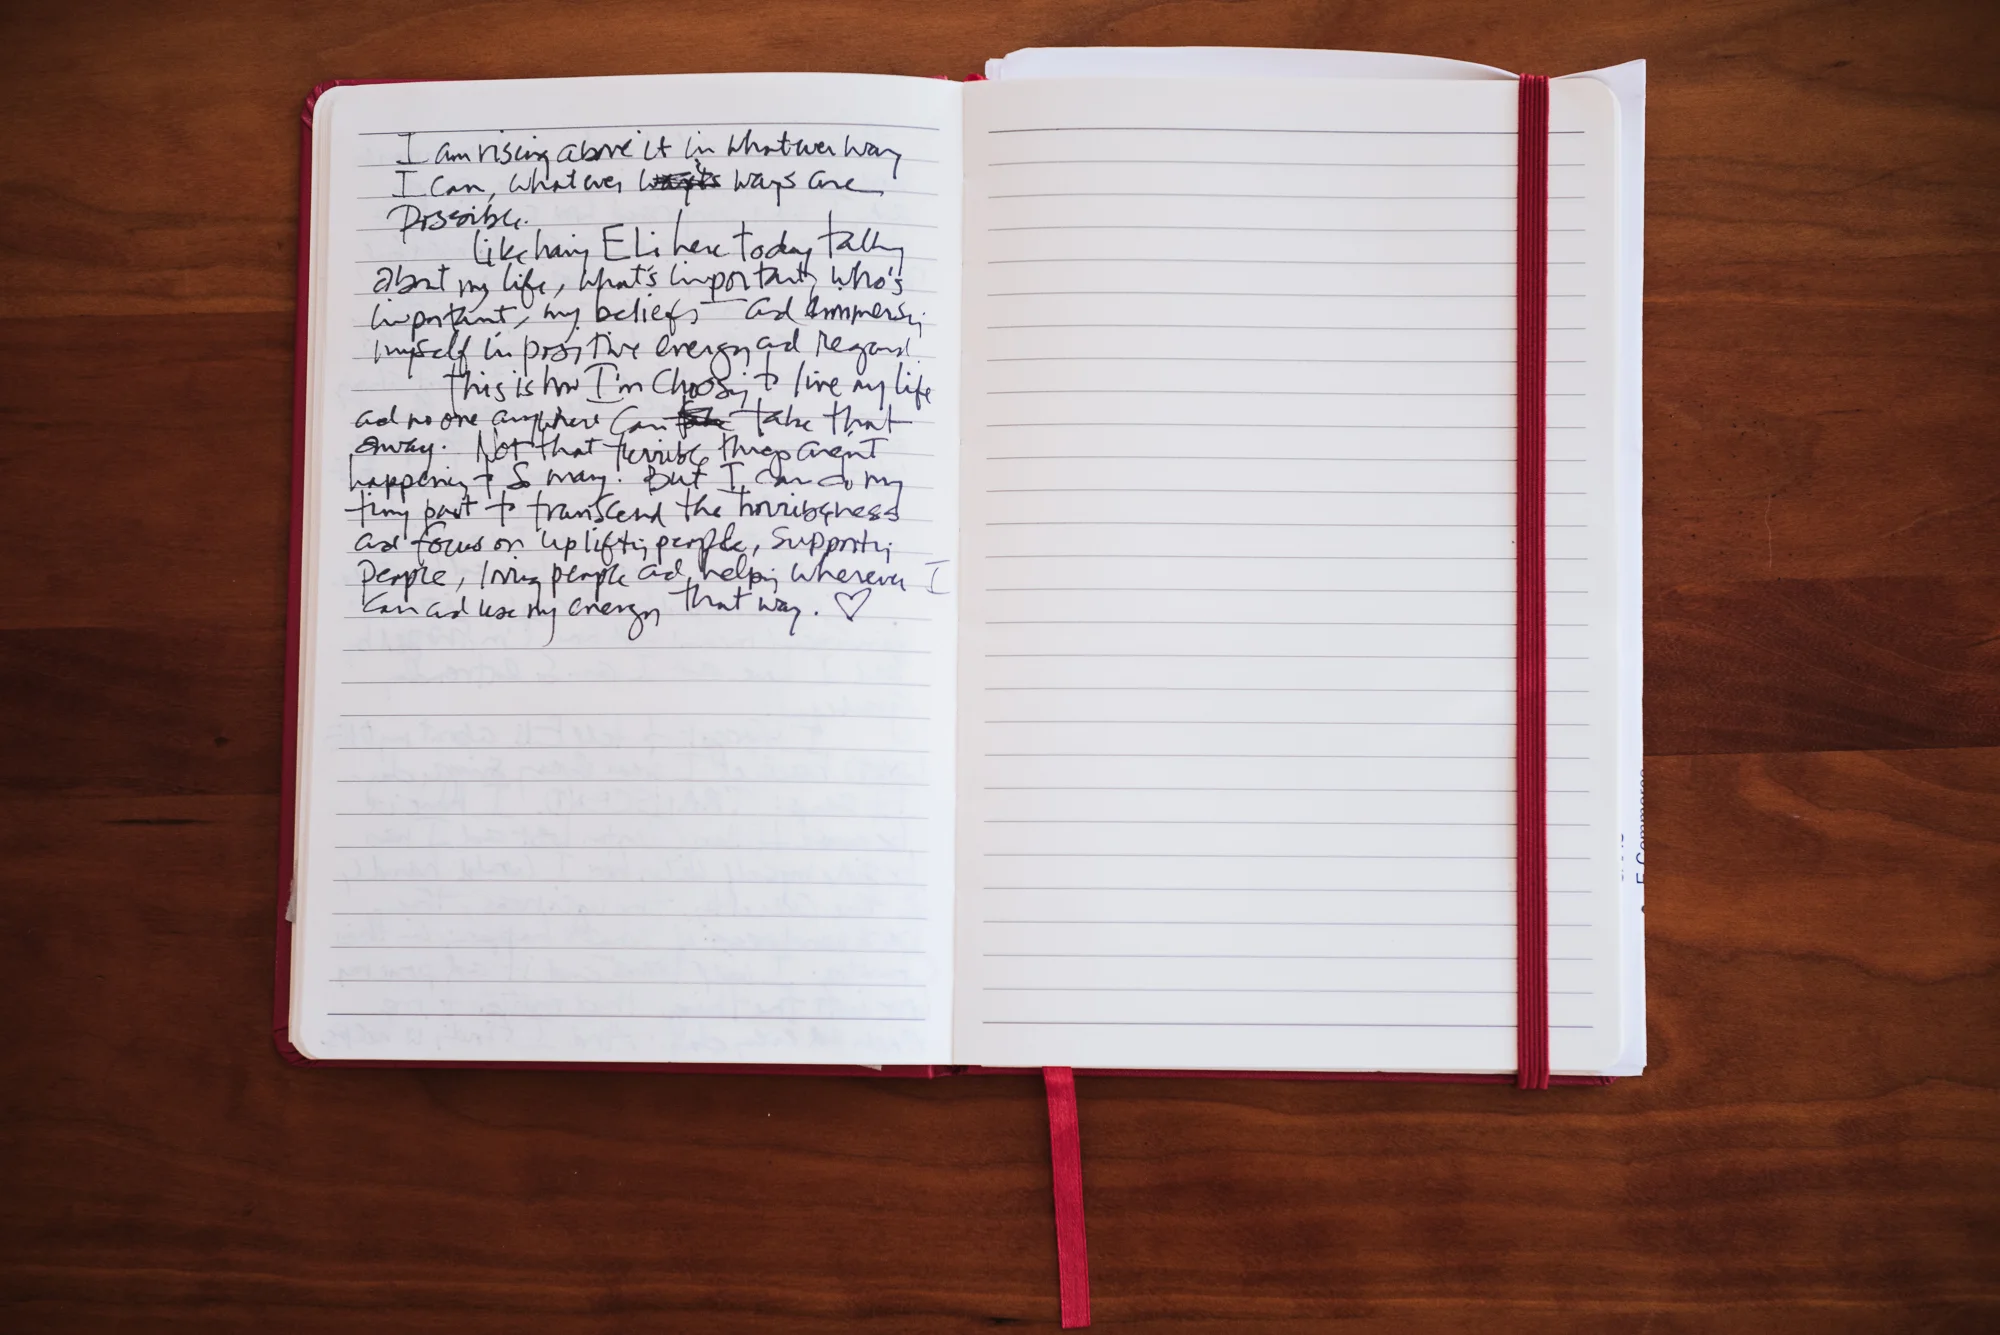 I am rising above it in whatever way
I can, whatever ways are
possible.
Like having ELi here today talking
about my life, what's important, who's
important, my beliefs – and immersing
myself in positive energy and regard.
This is how I'm choosing to live my life
and no one anywhere can take that
away. Not that terrible things aren't
happening to so many. But I can do my
tiny part to transcend the horribleness
and focus on uplifting people, supporting
people, loving people and helping wherever I
can and use my energy that way. ♡
E Commerce